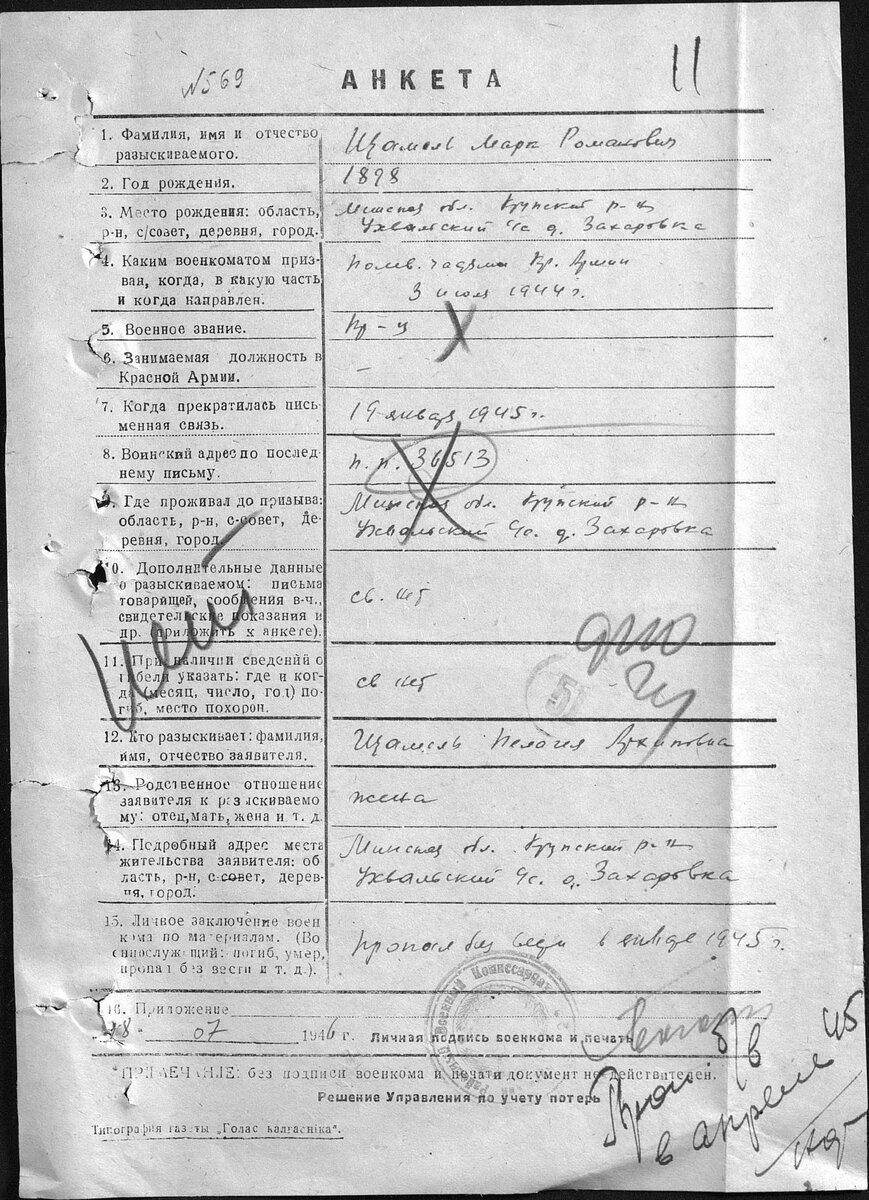 N569
АНКЕТА
11
1. Фамилия, имя и отчество
разыскиваемого.
Щамель Марк Романович
2. Год рождения.
1898
3. Место рождения: область,
р-н, с/совет, деревня, город.
Минская обл. Крупский р-н
Ухвальский с/с. д. Захаровка
4. Каким военкоматом приз-
ван, когда, в какую часть
и когда направлен.
Полев. частями Кр. Армии
3 июля 1944 г.
5. Военное звание.
кр-ц
6. Занимаемая должность в
Красной Армии.
–
7. Когда прекратилась пись-
менная связь.
19 января 1945 г.
8. Воинский адрес по послед-
нему письму.
п.п. 36513
9. Где проживал до призыва:
область, р-н, с-совет, де-
ревня, город.
Минская обл. Крупский р-н
Ухвальский с/с. д. Захаровка
10. Дополнительные данные
о разыскиваемом: письма
товарищей, сообщения в-ч.,
свидетельские показания и
др. приложить к анкете).
св. нет
нет
11. При наличии сведений о
гибели указать: где и ког-
да (месяц, число, год) по-
гиб, место похорон.
св нет
51
12. Кто разыскивает: фамилия,
имя, отчество заявителя.
Щамель Пелогея Архиповна
13. Родственное отношение
заявителя к разыскиваемо
му: отец, мать, жена и т. д.
жена
14. Подробный адрес места
жительства заявителя: об
ласть, р-н, с-совет, дерев-
ня, город.
Минская обл. Крупский р-н
Ухвальский с/с. д. Захаровка
15. Личное заключение воен
кома по материалам. (Во
еннослужащий: погиб, умер,
пропал без вести и т. д.).
Пропал без вести в январе 1945 г.
16. Приложение
28 " 07 1946 г. Личная подпись военкома и печать
Военный Комиссариат
ПРИМЕЧАНИЕ: без подписи военкома и печати документ не действителен.
Решение Управления по учету потерь
Проп. б/в
в апреле 45
Типография газеты „Голас калгасніка".